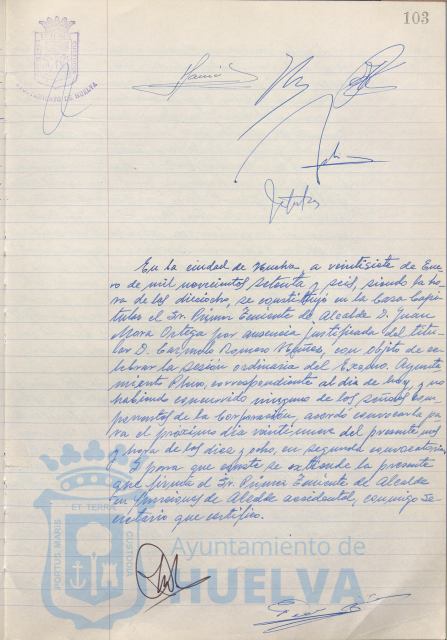 103
AYUNTAMIENTO DE HUELVA
En la ciudad de Huelva, a veintisiete de Ene-
ro de mil novecientos setenta y seis, siendo la ho-
ra de las dieciocho, se constituyó en la Casa Capi-
tular el Sr. Primer Teniente de Alcalde D. Juan
Mora Ortega por ausencia justificada del titu-
lar D. Carmelo Romero Núñez, con objeto de ce-
lebrar la sesión ordinaria del Excmo. Ayunta-
miento Pleno, correspondiente al día de hoy, y no
habiendo concurrido ninguno de los señores com-
ponentes de la Corporación, acordó convocarla pa-
ra el próximo día veintinueve del presente mes
y hora de las diez y ocho, en segunda convocatoria.
Y para que conste se extiende la presente
que firma el Sr. Primer Teniente de Alcalde
en funciones de Alcalde accidental, conmigo Se-
cretario que certifico.
PORTUS MARIS ET TERRAE CUSTODIA
Ayuntamiento de
HUELVA